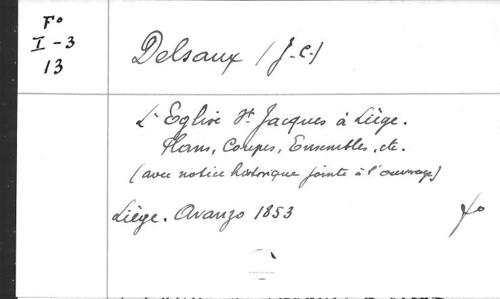 F°
I-3
13
Delsaux (J-C)
L'Eglise St Jacques à Liège.
Plans, Coupes, Ensembles, etc.
(avec notice historique jointe à l'ouvrage)
Liège. Avanzo 1853
f°